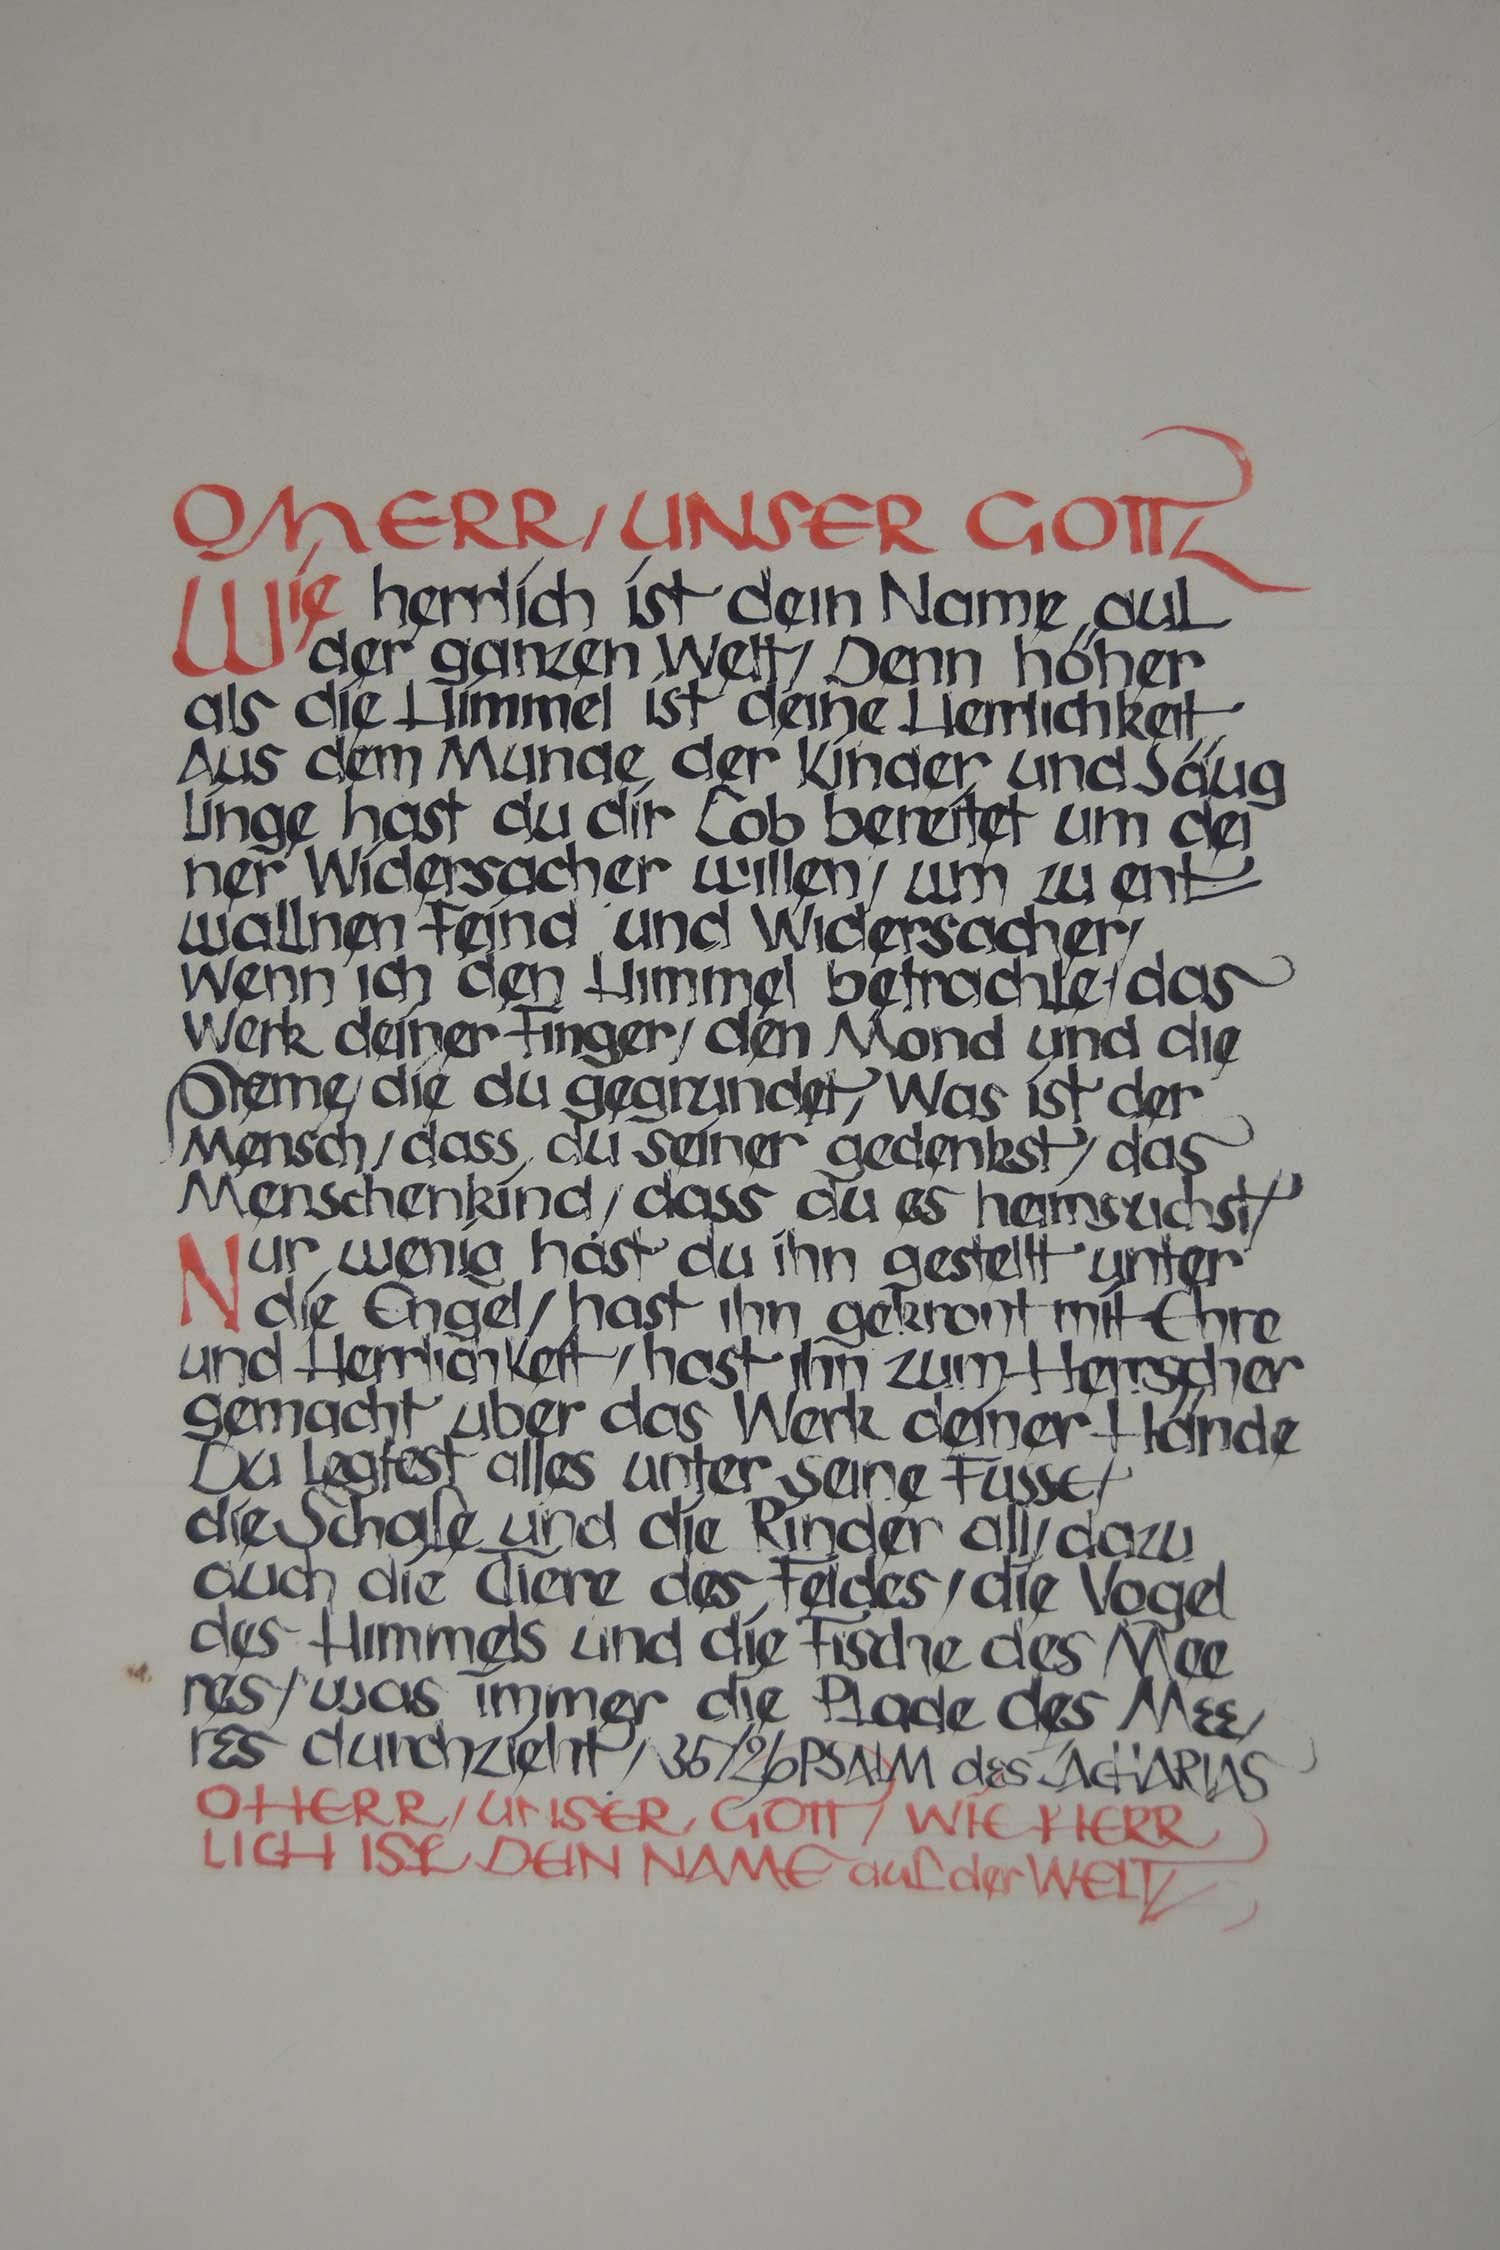 O HERR / UNSER GOTT
Wie herrlich ist dein Name auf
der ganzen Welt / Denn höher
als die Himmel ist deine Herrlichkeit
Aus dem Munde der Kinder und Säug
linge hast du dir Lob bereitet um dei
ner Widersacher willen / um zu ent
waffnen Feind und Widersacher /
Wenn ich den Himmel betrachte / das
Werk deiner Finger / den Mond und die
Sterne / die du gegründet / Was ist der
Mensch / dass du seiner gedenkst / das
Menschenkind / dass du es heimsuchst /
Nur wenig hast du ihn gestellt unter
die Engel / hast ihn gekront mit Ehre
und Herrlichkeit / hast ihn zum Herrscher
gemacht uber das Werk deiner Hände
Du legtest alles unter seine Füsse /
die Schafe und die Rinder all / dazu
auch die Tiere des Feldes / die Vogel
des Himmels und die Fische des Mee
res / was immer die Pfade des Mee /
res durchzieht / PSALM des ZACHARIAS
O HERR / UNSER GOTT / WIE HERR
LICH IST DEIN NAME auf der WELT